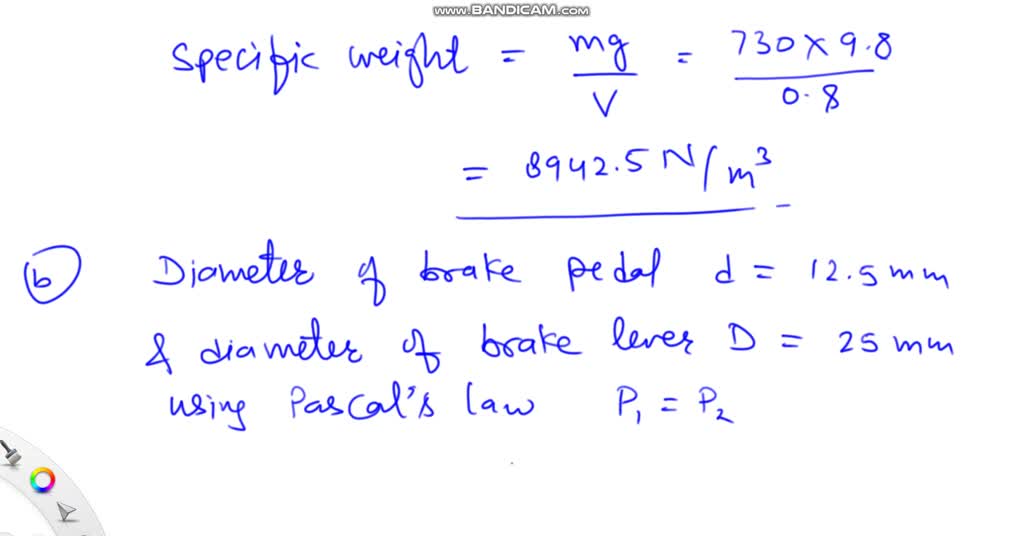 www.BANDICAM.com
Specific weight = mg/V = 730 × 9.8/0.8
= 8942.5 N/m³
(b) Diameter of brake pedal d = 12.5 mm
& diameter of brake lever D = 25 mm
using Pascal's law P₁ = P₂